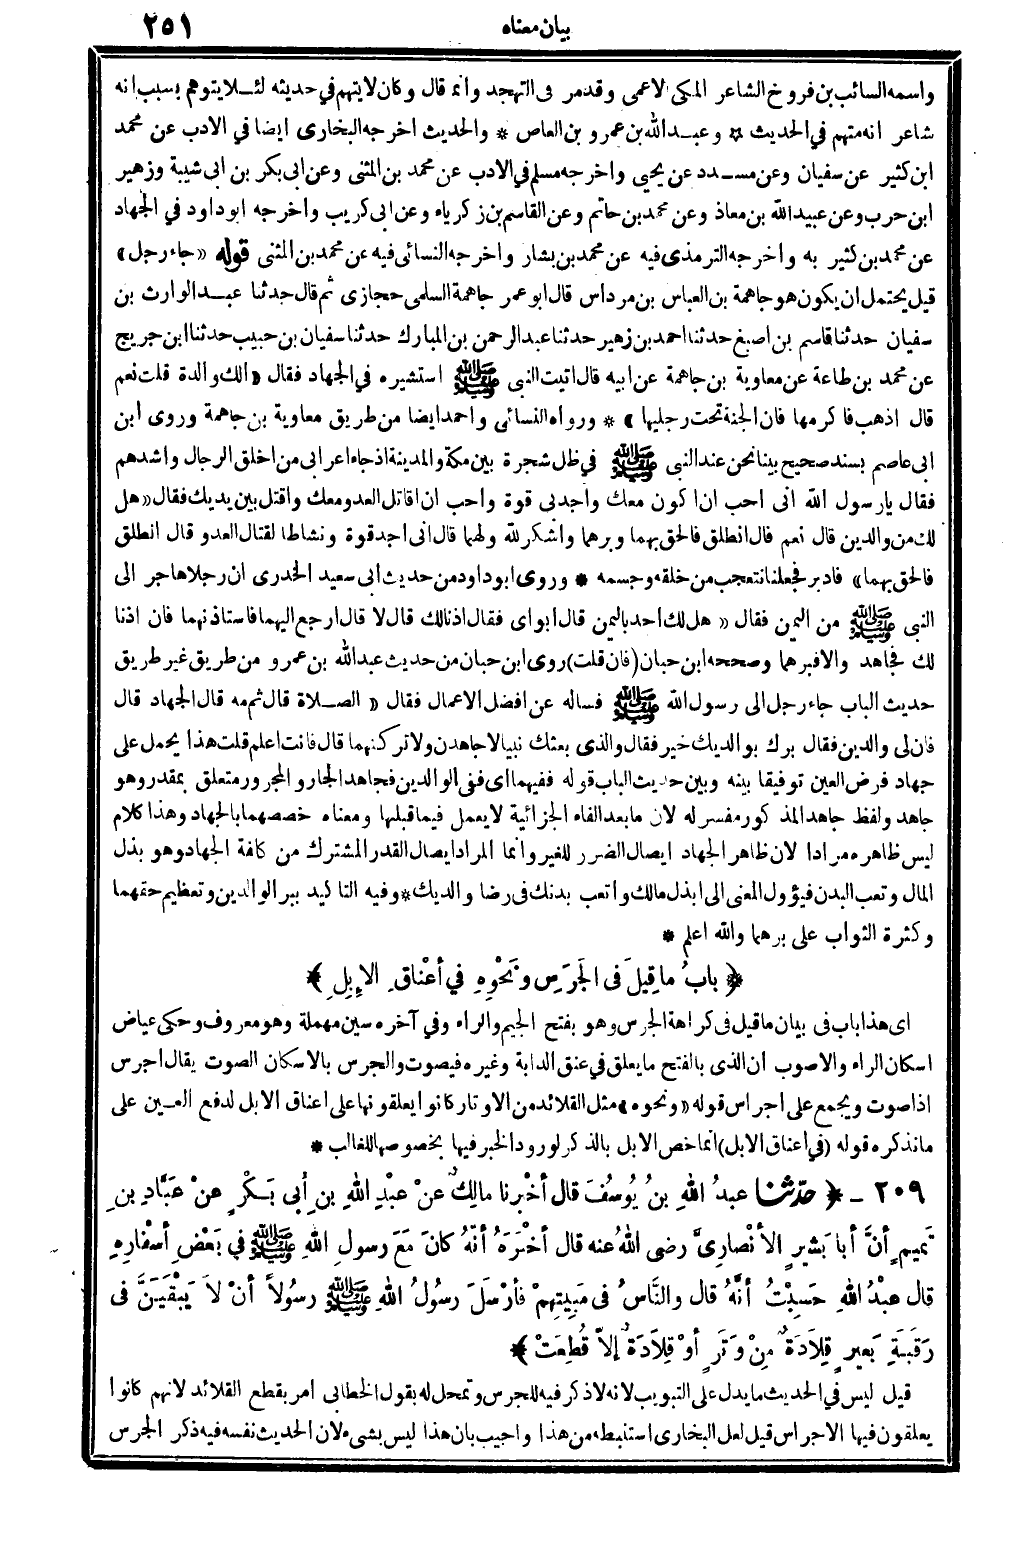 بيان معناه ٢٥١
واسمه السائب بن فروخ الشاعر المكى الاعمى وقد مر فى التهجد وانما قال وكان لا يتهم في حديثه لئلا يتوهم بسبب انه
شاعر انه متهم في الحديث * وعبد الله بن عمرو بن العاص * والحديث اخرجه البخارى ايضا في الادب عن محمد
ابن كثير عن سفيان وعن مسدد عن يحيى واخرجه مسلم في الادب عن محمد بن المثنى وعن ابى بكر بن ابى شيبة وزهير
ابن حرب وعن عبيد الله بن معاذ وعن محمد بن حاتم وعن القاسم بن زكرياء وعن ابى كريب واخرجه ابو داود في الجهاد
عن محمد بن كثير به واخرجه الترمذى فيه عن محمد بن بشار واخرجه النسائى فيه عن محمد بن المثنى قوله «جاء رجل»
قيل يحتمل ان يكون هو جاهمة بن العباس بن مرداس قال ابو عمر جاهمة السلمى حجازى ثم قال حدثنا عبد الوارث بن
سفيان حدثنا قاسم بن اصبغ حدثنا احمد بن زهير حدثنا عبد الرحمن بن المبارك حدثنا سفيان بن حبيب حدثنا ابن جريج
عن محمد بن طاعة عن معاوية بن جاهمة عن ابيه قال اتيت النبى ﷺ استشيره في الجهاد فقال «الك والدة قلت نعم
قال اذهب فاكرمها فان الجنة تحت رجليها» * ورواه النسائى واحمد ايضا من طريق معاوية بن جاهمة وروى ابن
ابى عاصم بسند صحيح بينا نحن عند النبى ﷺ في ظل شجرة بين مكة والمدينة اذ جاء اعرابى من اخلق الرجال واشدهم
فقال يا رسول الله انى احب ان اكون معك واجد بى قوة واحب ان اقاتل العدو معك واقتل بين يديك فقال «هل
لك من والدين قال نعم قال انطلق فالحق بهما وبرهما واشكر لله ولهما قال انى اجد قوة ونشاطا لقتال العدو قال انطلق
فالحق بهما» فادبر فجعلنا نتعجب من خلقه وجسمه * وروى ابو داود من حديث ابى سعيد الخدرى ان رجلا هاجر الى
النبى ﷺ من اليمن فقال «هل لك احد باليمن قال ابواى فقال اذنا لك قال لا قال ارجع اليهما فاستاذنهما فان اذنا
لك فجاهد والا فبرهما وصححه ابن حبان (فان قلت) روى ابن حبان من حديث عبد الله بن عمرو من طريق غير طريق
حديث الباب جاء رجل الى رسول الله ﷺ فساله عن افضل الاعمال فقال «الصلاة قال ثم مه قال الجهاد قال
فان لى والدين فقال برك بوالديك خير فقال والذى بعثك نبيا لاجاهدن ولاتركنهما قال فانت اعلم قلت هذا يحمل على
جهاد فرض العين توفيقا بينه وبين حديث الباب قوله ففيهما اى ففى الوالدين فجاهد الجار والمجرور متعلق بمقدر وهو
جاهد ولفظ جاهد المذكور مفسر له لان ما بعد الفاء الجزائية لا يعمل فيما قبلها ومعناه خصصهما بالجهاد وهذا كلام
ليس ظاهره مرادا لان ظاهر الجهاد ايصال الضرر للغير وانما المراد ايصال القدر المشترك من كافة الجهاد وهو بذل
المال وتعب البدن فيؤول المعنى الى ابذل مالك واتعب بدنك فى رضا والديك * وفيه التاكيد ببر الوالدين وتعظيم حقهما
وكثرة الثواب على برهما والله اعلم *
﴿ بابُ ما قِيلَ فى الجَرَسِ ونَحْوِهِ فِي أعْناقِ الإِبِلِ ﴾
اى هذا باب فى بيان ما قيل فى كراهة الجرس وهو بفتح الجيم والراء وفي آخره سين مهملة وهو معروف وحكى عياض
اسكان الراء والاصوب ان الذى بالفتح ما يعلق في عنق الدابة وغيره فيصوت والجرس بالاسكان الصوت يقال اجرس
اذا صوت ويجمع على اجراس قوله «ونحوه» مثل القلائد من الاوتار كانوا يعلقونها على اعناق الابل لدفع العين على
ما نذكره قوله (في اعناق الابل) انما خص الابل بالذكر لورود الخبر فيها بخصوصها للغالب *
٢٠٩ - ﴿ حدّثنا عبدُ اللهِ بنُ يُوسُفَ قال أخْبرنا مالِكٌ عنْ عبْدِ اللهِ بنِ أبى بَكْرٍ عنْ عَبَّادِ بنِ
تَمِيمٍ أنَّ أبا بَشِيرٍ الأنْصارِىَّ رضى اللهُ عنه قال أخْبَرَهُ أنَّهُ كانَ مَعَ رسولِ اللهِ ﷺ في بَعْضِ أسْفارِهِ
قال عبْدُ اللهِ حَسِبْتُ أنَّهُ قال والنَّاسُ فى مَبِيتِهِمْ فأرْسَلَ رسُولُ اللهِ ﷺ رسُولاً أنْ لاَ يَبْقَيَنَّ فى
رَقَبَةِ بَعِيرٍ قِلاَدَةٌ مِنْ وَتَرٍ أوْ قِلاَدَةٌ إلاَّ قُطِعَتْ ﴾
قيل ليس في الحديث ما يدل على التبويب لانه لا ذكر فيه للجرس وتمحل له بقول الخطابى امر بقطع القلائد لانهم كانوا
يعلقون فيها الاجراس قيل لعل البخارى استنبطه من هذا واجيب بان هذا ليس بشىء لان الحديث نفسه فيه ذكر الجرس